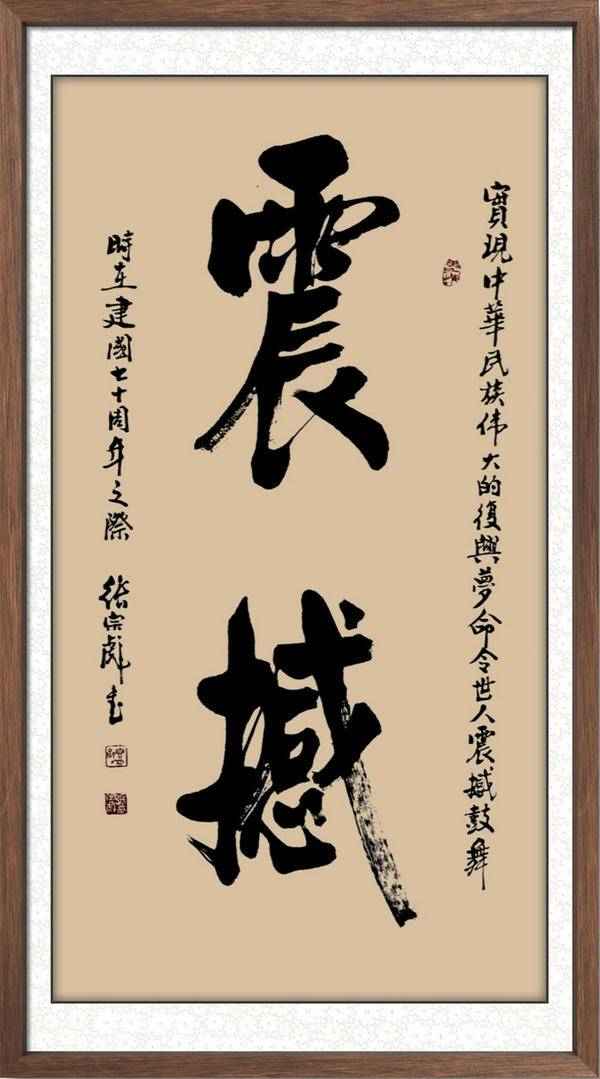 實現中華民族伟大的復興夢命令世人震撼鼓舞
震撼
時在建國七十周年之際
張宗彪書